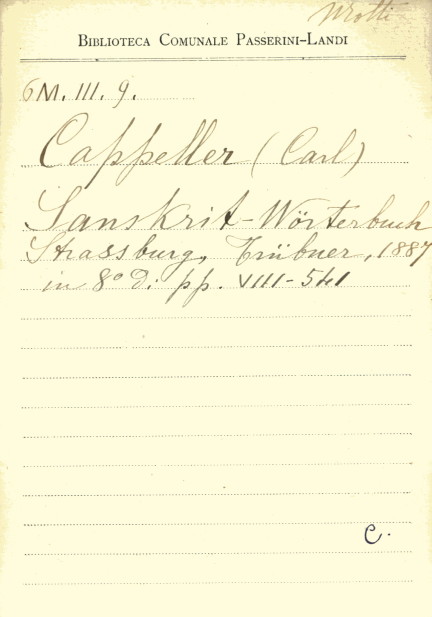 Motti
BIBLIOTECA COMUNALE PASSERINI-LANDI
6M. III. 9.
Cappeller (Carl)
Sanskrit-Wörterbuch
Strassburg, Trübner, 1887
in 8° di pp. VIII-541
C.